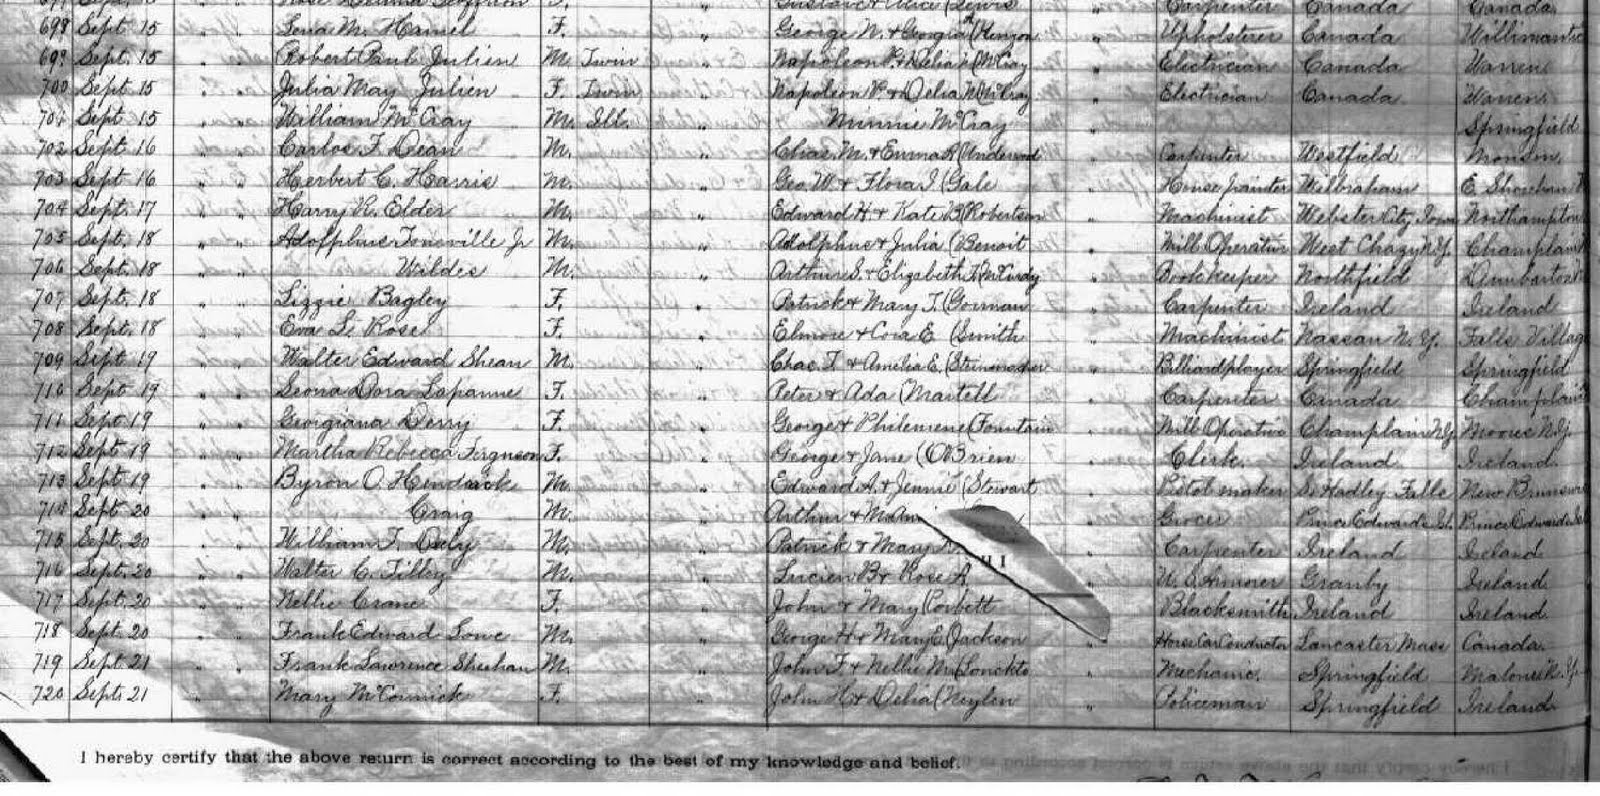 698 Sept. 15 Lena M. Hamel F. " George N. & Georgia A (Henson " Upholsterer Canada Willimantic
699 Sept. 15 " " Robert Paul Julien M. Twin " Napoleon P. & Delia M (McCray " Electrician Canada Warren
700 Sept. 15 " " Julia May Julien F. Twin " Napoleon P. & Delia M (McCray " Electrician Canada Warren
701 Sept. 15 " " William McCray M. Ill. " Minnie McCray Springfield
702 Sept. 16 " " Carlos F. Dean M. " Chas. M. & Emma R (Underwood " Carpenter Westfield Monson
703 Sept. 16 " " Herbert C. Harris M. " Geo. W. & Flora I (Gale " House painter Wilbraham E. Shoreham
704 Sept. 17 " " Harry R. Elder M. " Edward H. & Kate B (Robertson " Machinist Webster City, Iowa Northampton
705 Sept. 18 " " Adolphus Jr M. " Adolphus & Julia (Benoit " Mill Operative West Chazy N.Y. Champlain
706 Sept. 18 " " Wildes M. " Arthur S. & Elizabeth F. (McCurdy " Bookkeeper Northfield Dunbarton
707 Sept. 18 " " Lizzie Bagley F. " Patrick & Mary T. (Gorman " Carpenter Ireland Ireland
708 Sept. 18 " " Eva L. Rose F. " Elmore & Cora E (Smith " Machinist Nassau N.Y. Falls Village
709 Sept 19 " " Walter Edward Shean M. " Chas. T. & Amelia E. " Billiard player Springfield Springfield
710 Sept. 19 " " Leona Dora Lapanne F. " Peter & Ada (Martell " Carpenter Canada Champlain
711 Sept. 19 " " Georgiana Derry F. " George & Philemene (Fountain " Mill Operative Champlain N.Y. Mooers N.Y.
712 Sept. 19 " " Martha Rebecca Ferguson F. " George & Jane (O'Brien " Clerk Ireland Ireland
713 Sept. 19 " " Byron O. Hendrick M. " Edward A. & Jennie (Stewart " Pistol maker S. Hadley Falls New Brunswick
714 Sept. 20 " " Craig M. " Arthur & Grocer Prince Edwards Isl. Prince Edwards Isl
715 Sept. 20 " " William F. Daly M. " Patrick & Mary Carpenter Ireland Ireland
716 Sept. 20 " " Walter C. Tilley M. " Lucien B & Rose A " U.S. Armorer Granby Ireland
717 Sept. 20 " " Nellie Crane F. " John & Mary (Corbett " Blacksmith Ireland Ireland
718 Sept. 20 " " Frank Edward Lowe M. " George H & Mary E. (Jackson " Horse Car Conductor Lancaster Mass Canada
719 Sept. 21 " " Frank Lawrence Sheehan M. " John F & Nellie M. " Mechanic Springfield Malone N.Y.
720 Sept. 21 " " Mary McCormick F. " John H & Delia (Neylon " Policeman Springfield Ireland
I hereby certify that the above return is correct according to the best of my knowledge and belief.